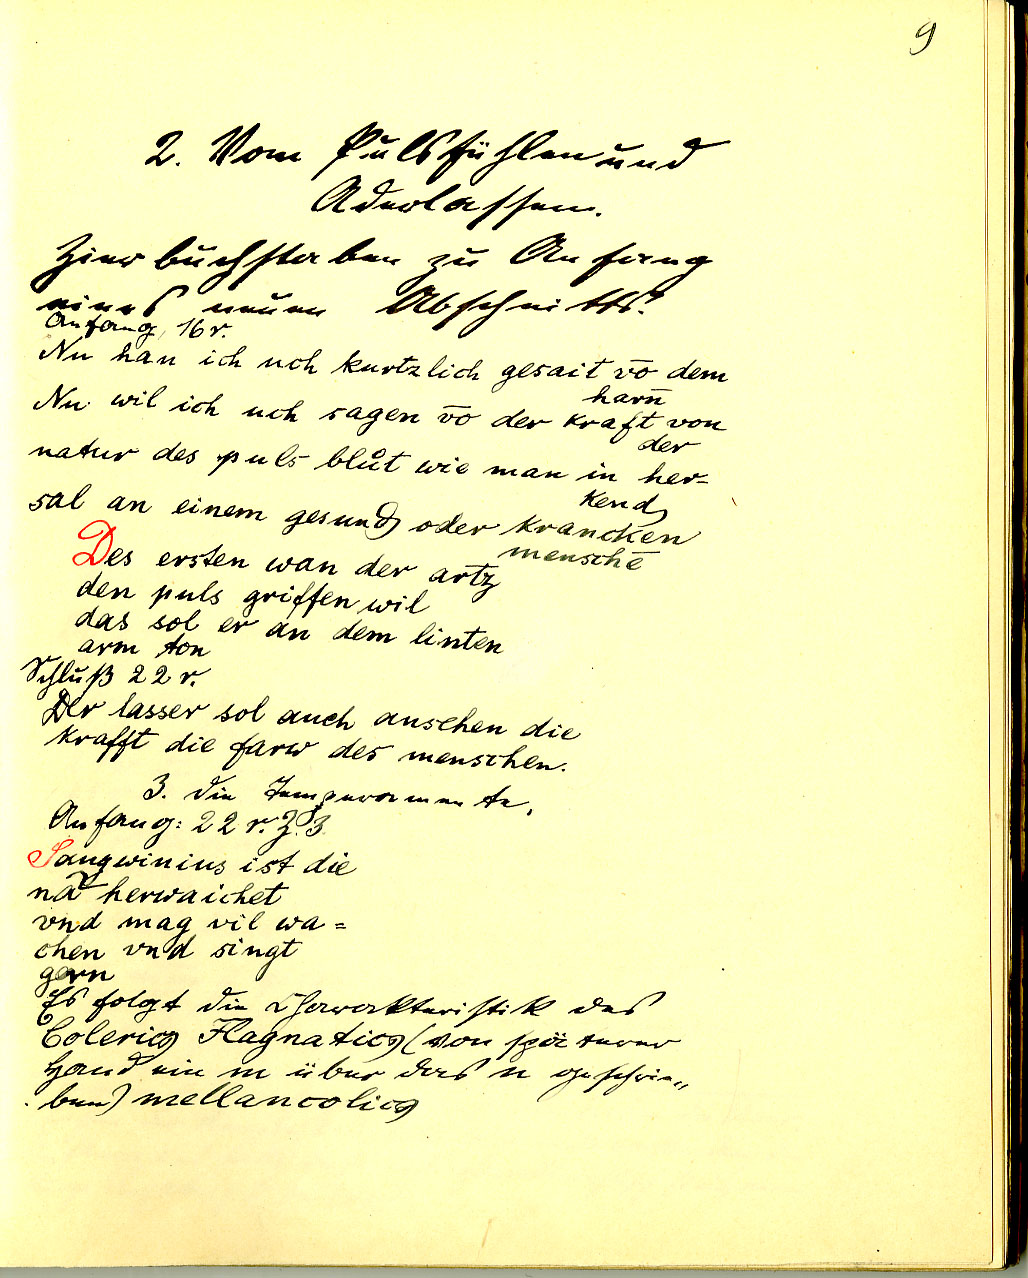 9
2. Vom Pulsfühlen und
Aderlassen.
Zierbuchstaben zu Anfang
eines neuen Abschnitts.
Anfang, 16 r.
Nu han ich uch kurtzlich gesait vō dem
harn̄
Nu wil ich uch sagen vō der kraft von
der
natur des puls blůt wie man in her-
kend
sal an einem gesund oder krancken
menschē
Des ersten wan der artz
den puls griffen wil
das sol er an dem linken
arm ton
Schluß 22 r.
Der lasser sol auch ansehen die
krafft die farw des menschen.
3. die Temperamente.
Anfang: 22 r. Z. 3
Sangwinius ist die
herwaichet
vnd mag vil wa=
chen vnd singt
gern
Es folgt die Charakteristik des
Colericus Flagnaticus (von späterer
Hand ein m über das n geschrie„
ben) mellancolicus